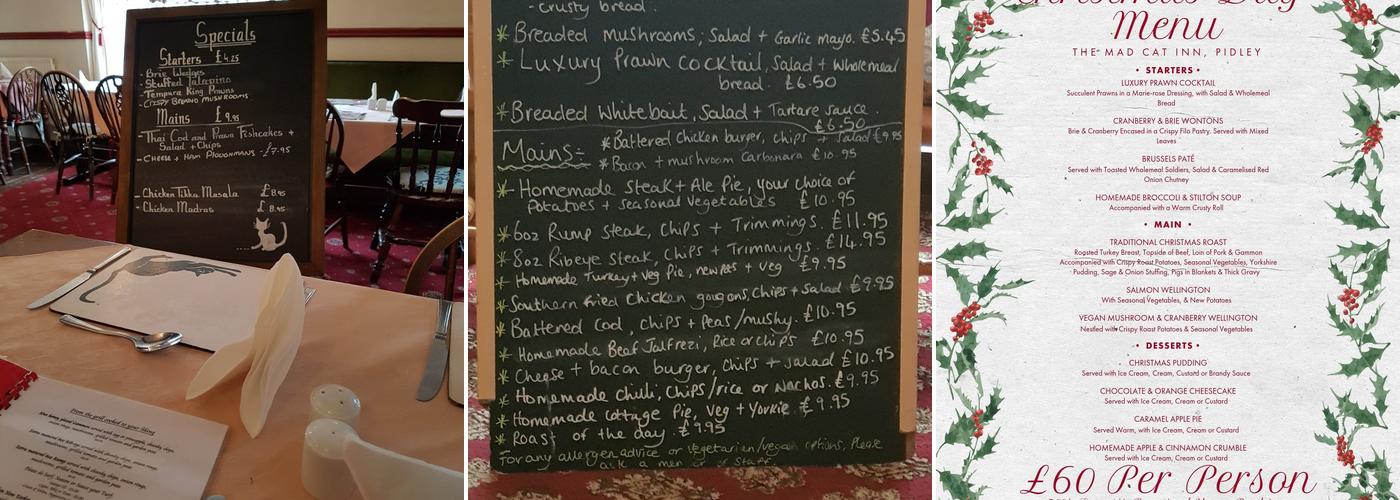 Specials
Starters £4.25
- Brie Wedges
- Stuffed Jalapino
- Tempura King Prawns
- Crispy Breaded Mushrooms
Mains £9.95
- Thai Cod and Prawn Fishcakes +
Salad + Chips
- Cheese + Ham Ploughmans - £7.95
- Chicken Tikka Masala £8.95
- Chicken Madras £8.95
From the grill cooked to your liking
- crusty bread.
* Breaded mushrooms, Salad + Garlic mayo. £5.45
* Luxury Prawn cocktail, Salad + wholemeal
bread. £6.50
* Breaded Whitebait, Salad + Tartare sauce.
£6.50
* Battered chicken burger, chips + Salad £9.95
Mains:-
* Bacon + mushroom Carbonara £10.95
* Homemade Steak + Ale Pie, your choice of
potatoes + seasonal vegetables £10.95
* 6oz Rump Steak, Chips + Trimmings. £11.95
* 8oz Ribeye steak, Chips + Trimmings. £14.95
* Homemade Turkey + Veg Pie, new pots + veg £9.95
* Southern fried Chicken goujons, Chips + Salad £9.95
* Battered Cod, chips + Peas/mushy. £10.95
* Homemade Beef Jalfrezi, Rice or chips £10.95
* Cheese + bacon burger, Chips + Salad £10.95
* Homemade chilli, Chips/rice or Nachos. £9.95
* Homemade Cottage Pie, Veg + Yorkie £9.95
* Roast of the day. £9.95
For any allergen advice or vegetarian/vegan options, Please
ask a
Staff
Christmas Day
Menu
THE MAD CAT INN, PIDLEY
• STARTERS •
LUXURY PRAWN COCKTAIL
Succulent Prawns in a Marie-rose Dressing, with Salad & Wholemeal
Bread
CRANBERRY & BRIE WONTONS
Brie & Cranberry Encased in a Crispy Filo Pastry. Served with Mixed
Leaves
BRUSSELS PATÉ
Served with Toasted Wholemeal Soldiers, Salad & Caramelised Red
Onion Chutney
HOMEMADE BROCCOLI & STILTON SOUP
Accompanied with a Warm Crusty Roll
• MAIN •
TRADITIONAL CHRISTMAS ROAST
Roasted Turkey Breast, Topside of Beef, Loin of Pork & Gammon
Accompanied with Crispy Roast Potatoes, Seasonal Vegetables, Yorkshire
Pudding, Sage & Onion Stuffing, Pigs in Blankets & Thick Gravy
SALMON WELLINGTON
With Seasonal Vegetables, & New Potatoes
VEGAN MUSHROOM & CRANBERRY WELLINGTON
Nestled with Crispy Roast Potatoes & Seasonal Vegetables
• DESSERTS •
CHRISTMAS PUDDING
Served with Ice Cream, Cream, Custard or Brandy Sauce
CHOCOLATE & ORANGE CHEESECAKE
Served with Ice Cream, Cream or Custard
CARAMEL APPLE PIE
Served Warm, with Ice Cream, Cream or Custard
HOMEMADE APPLE & CINNAMON CRUMBLE
Served with Ice Cream, Cream or Custard
£60 Per Person